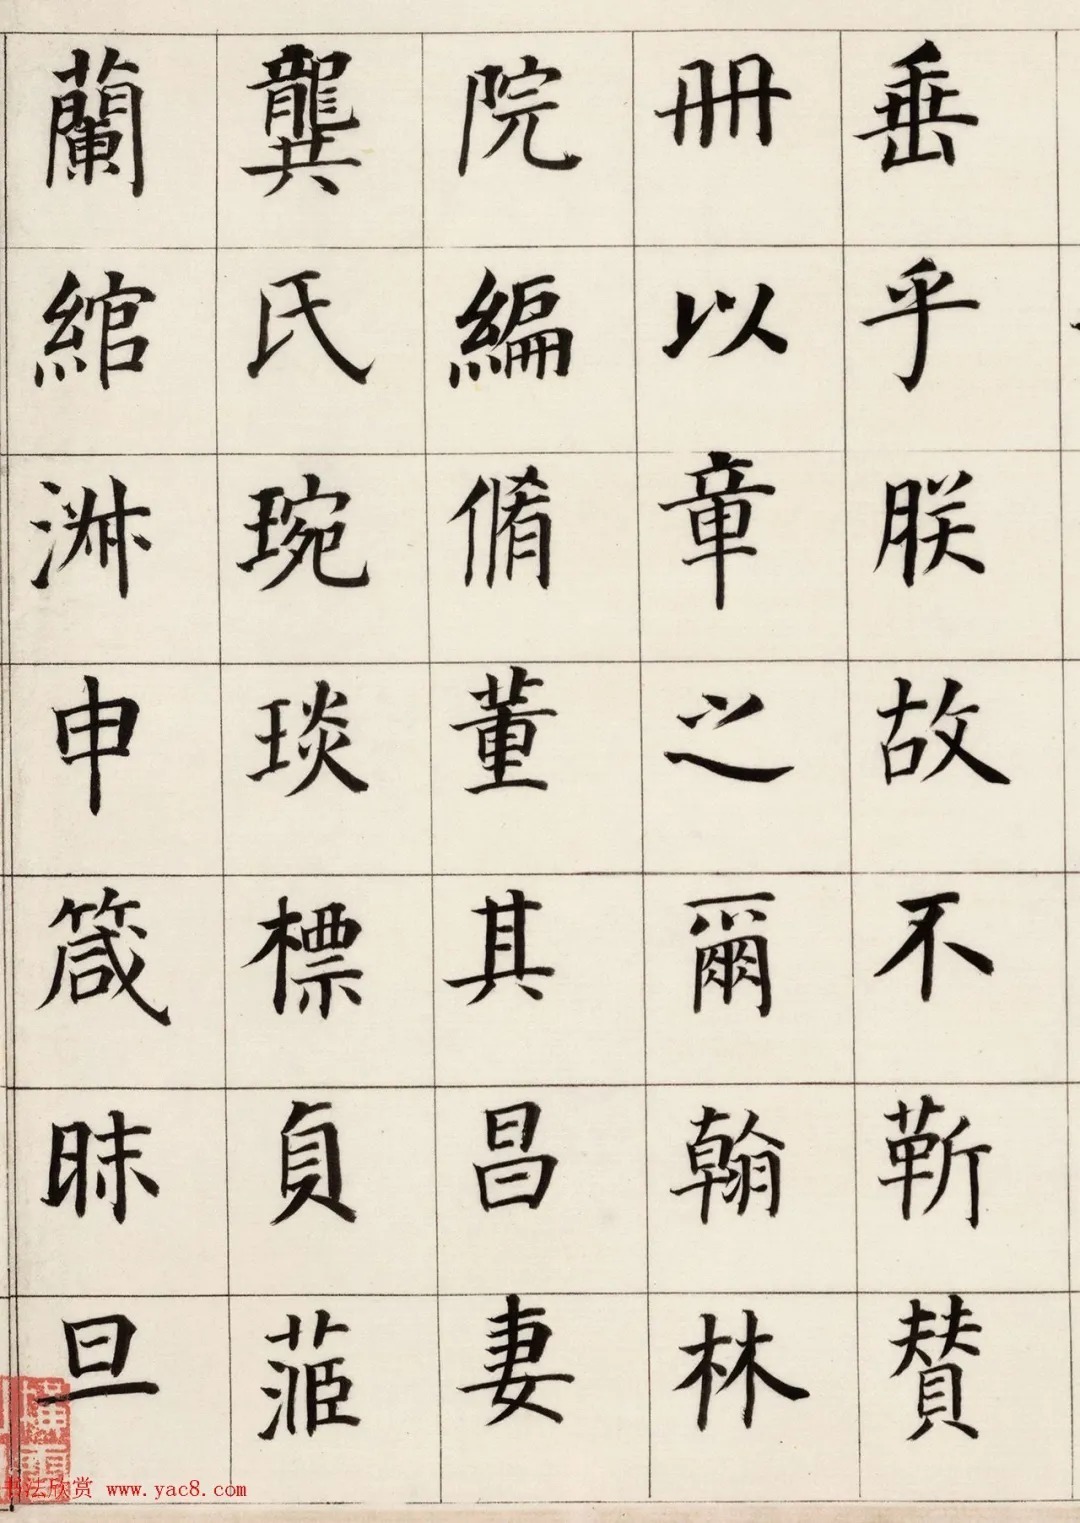 垂乎朕故不靳赞
冊以章之爾翰林
院編脩董其昌妻
龔氏琬琰標貞茝
蘭綰淋申箴昧旦
书法欣赏 www.yac8.com